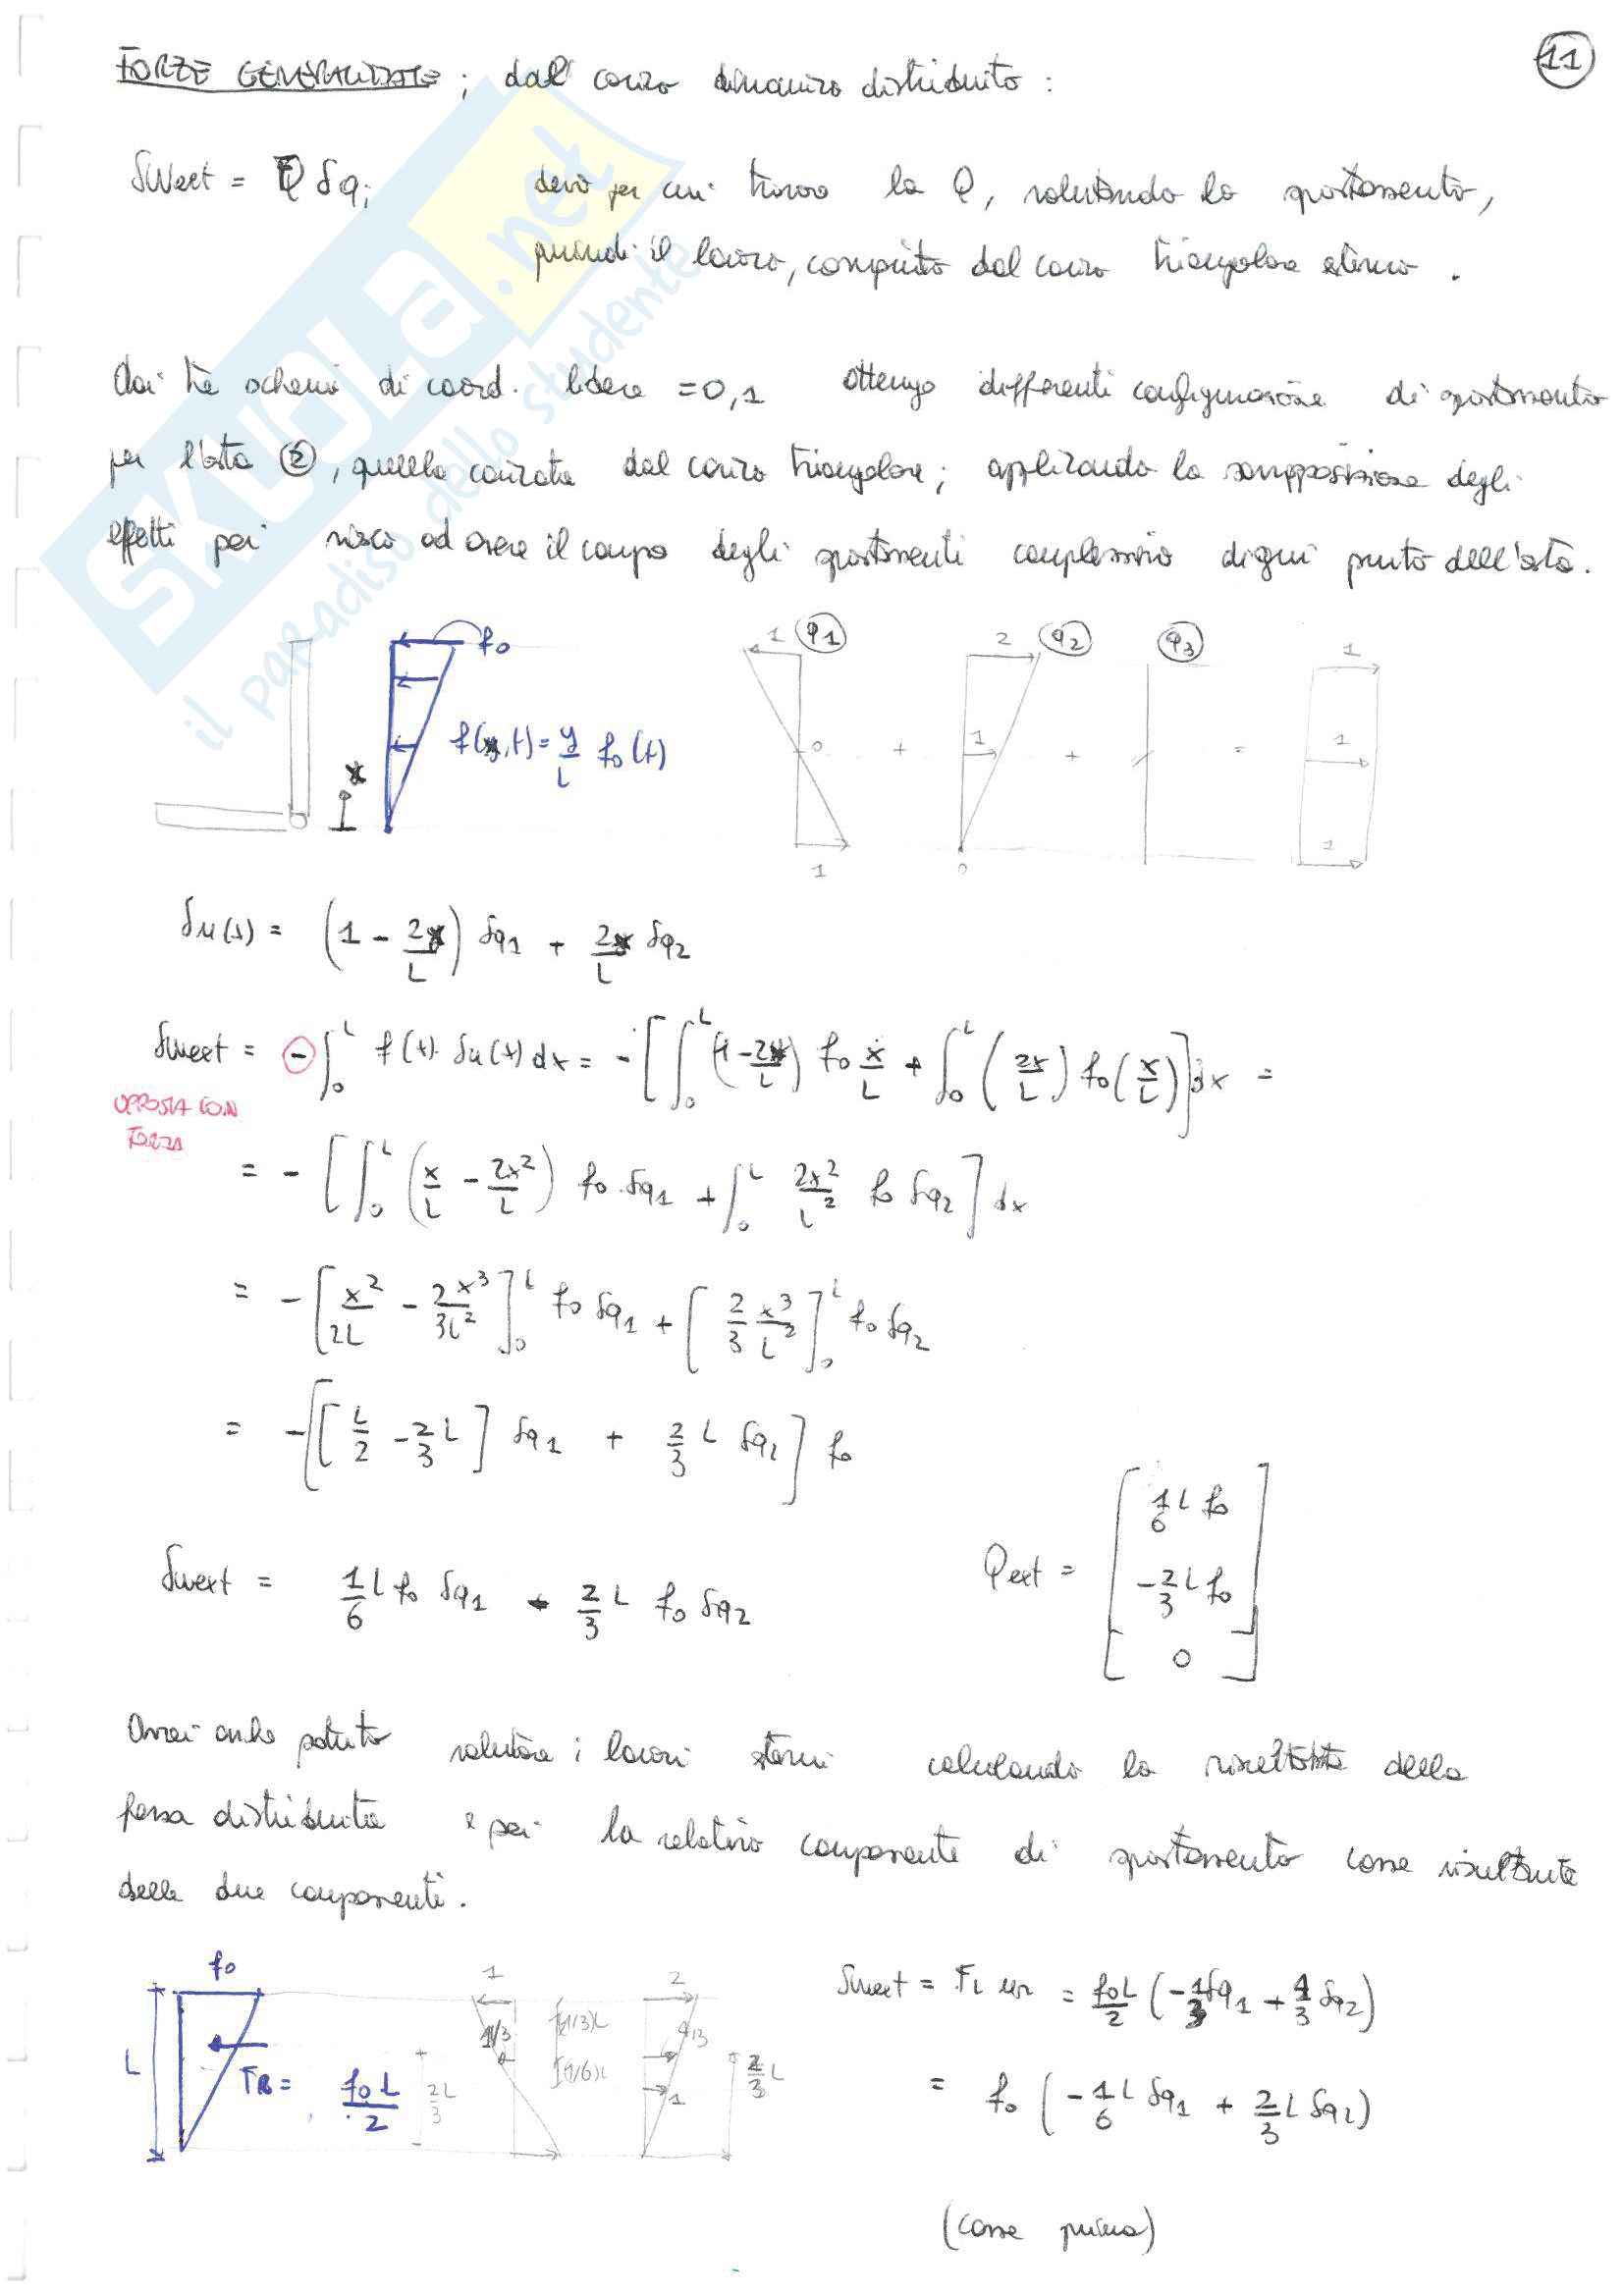 11
FORZE GENERALIZZATE ; dal carico dinamico distribuito :
δWext = Q δq ;
devo per cui trovare la Q, valutando lo spostamento,
quindi il lavoro, compiuto dal carico triangolare esterno .
Dai tre schemi di coord. libere = 0,1 ottengo differenti configurazione di spostamento
per l'asta ②, quella caricata dal carico triangolare ; applicando la sovrapposizione degli
effetti poi riesco ad avere il campo degli spostamenti complessivo di ogni punto dell'asta.
f0
1 q1 2 q2 q3 1
x f(x,t) = y/L f0(t) 0 + 1 + = 1
1 0 1
δu(x) = (1 - 2x/L) δq1 + 2x/L δq2
δwext = - ∫0^L f(x) δu(x) dx = - [ ∫0^L (1 - 2x/L) f0 x/L + ∫0^L (2x/L) f0 (x/L) ] dx =
OPPOSTA CON
FORZA
= - [ ∫0^L (x/L - 2x²/L) f0 δq1 + ∫0^L 2x²/L² f0 δq2 ] dx
= - [ x²/2L - 2x³/3L² ]0^L f0 δq1 + [ 2/3 x³/L² ]0^L f0 δq2
= - [ [ L/2 - 2/3 L ] δq1 + 2/3 L δq2 ] f0
δwext = 1/6 L f0 δq1 - 2/3 L f0 δq2
Qext = [ 1/6 L f0
-2/3 L f0
0 ]
Avrei anche potuto valutare i lavori esterni calcolando la risultante della
forza distribuita e poi la relativa componente di spostamento come risultante
delle due componenti.
f0 1 2
L FR = f0 L/2 2L/3 1/3 (1/3)L (1/6)L 4/3 1 2/3 L
δwext = FR ur = f0L/2 ( - 1/3 δq1 + 4/3 δq2 )
= f0 ( - 1/6 L δq1 + 2/3 L δq2 )
(come prima)
SKUOLA.net
il paradiso dello studente